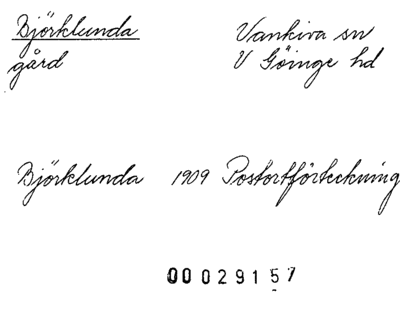 Björklunda Vankiva sn
gård V Göinge hd
Björklunda 1909 Postortförteckning
00 029157